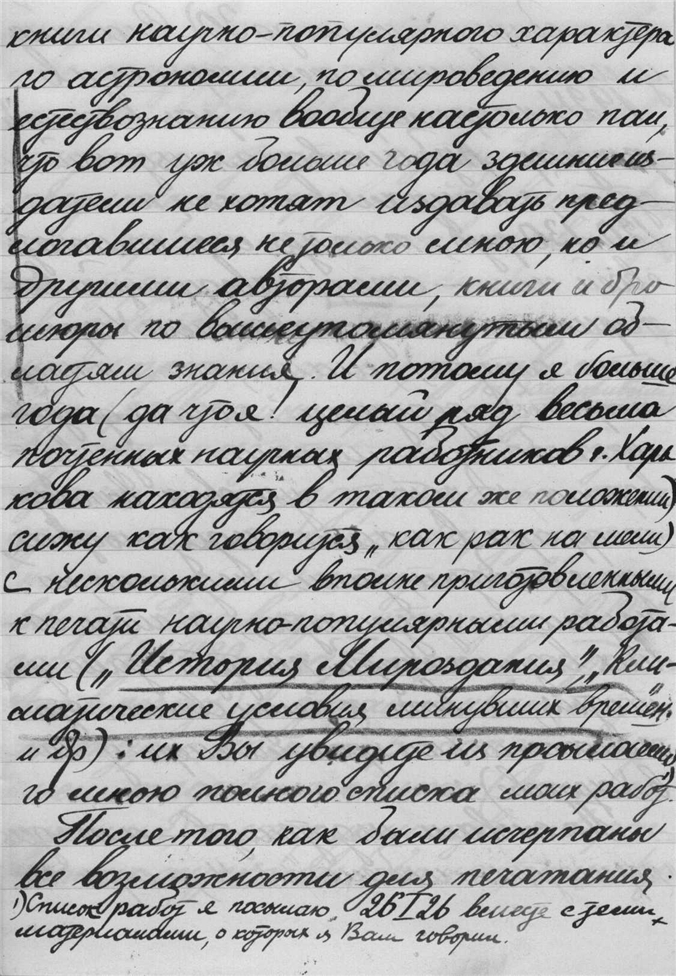 книги научно-популярного характера
го астрономии, по мироведению и
естествознанию вообще настолько пал,
что вот уж больше года здешние из-
датели не хотят издавать пред-
логавшиеся не только мною, но и
другими авторами, книги и бро
шюры по вышеупомянутым об-
ластям знания. И потому я больше
года (да что я! целый ряд весьма
почтенных научных работников г. Харь
кова находятся в таком же положении)
сижу как говорится „как рак на мели)
с несколькими вполне приготовленными
к печати научно-популярными работа-
ми („История Мироздания", „Кли-
матические условия минувших времен"
и др) : их Вы увидите из посылаемо
го мною полного списка моих работ 1).
После того, как были исчерпаны
все возможности для печатания
1) Список работ я посылаю 26 I 26 вместе с теми
материалами, о которых я Вам говорил.